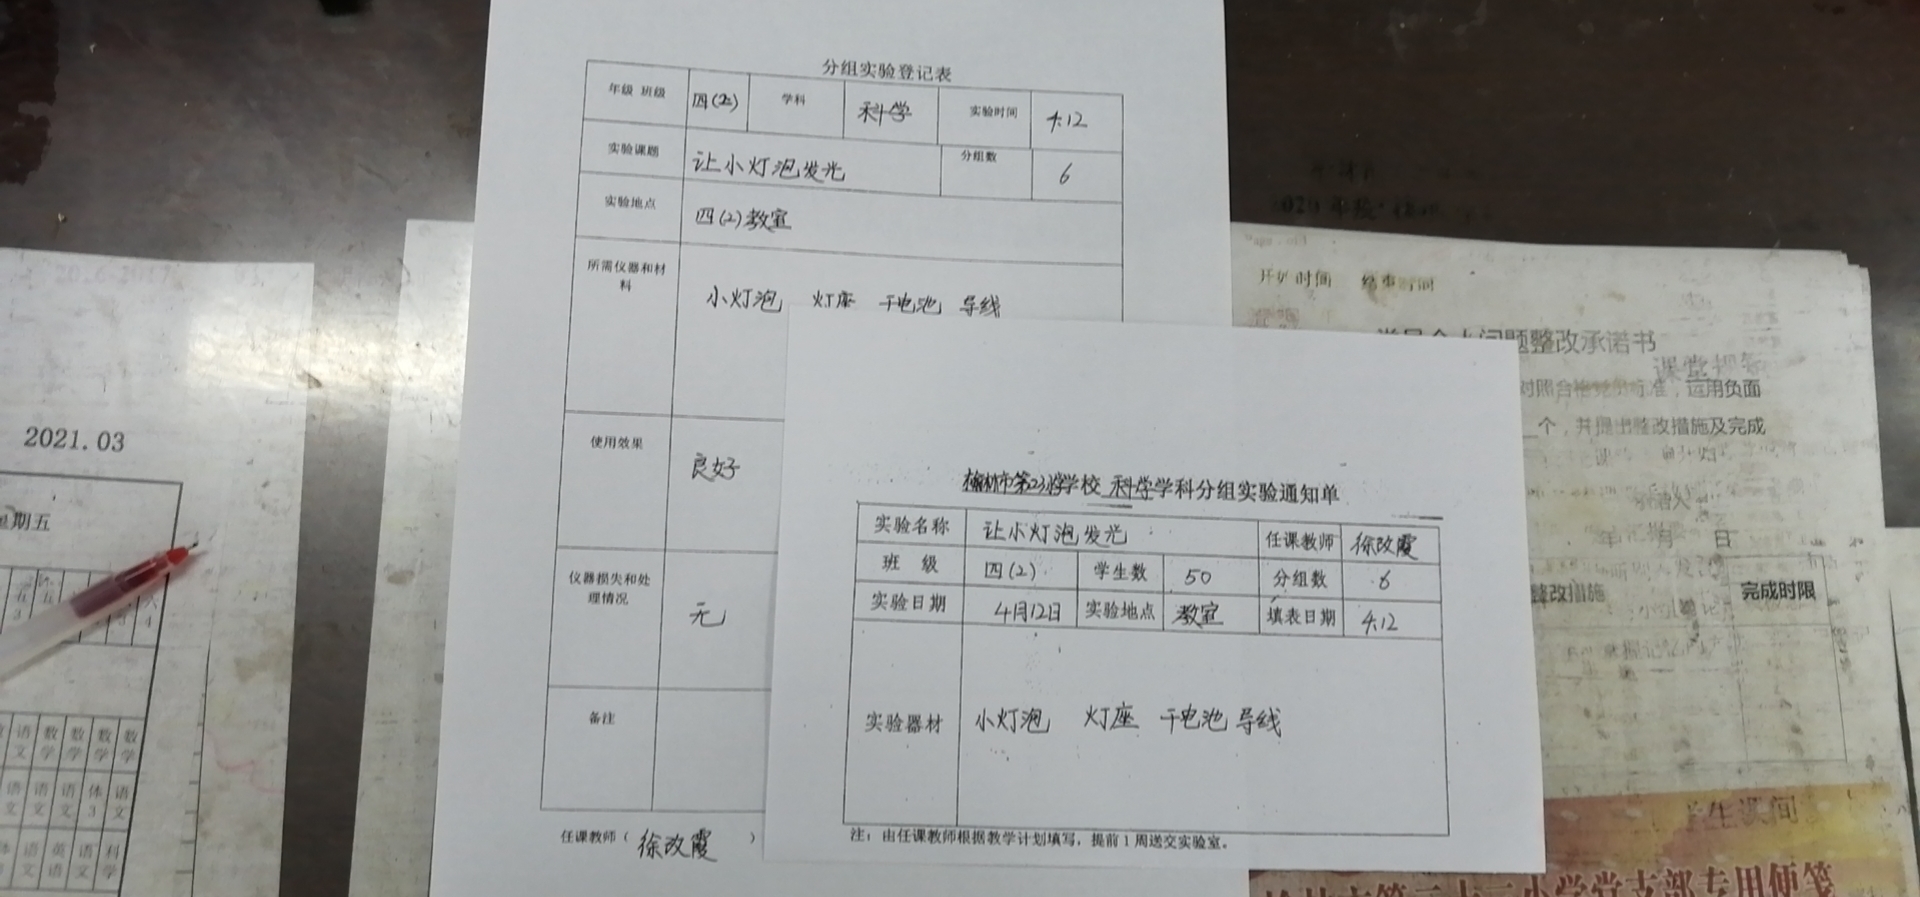 分组实验登记表
年级 班级 四(2) 学科 科学 实验时间 4.12
实验课题 让小灯泡发光 分组数 6
实验地点 四(2)教室
所需仪器和材料 小灯泡 灯座 干电池 导线
使用效果 良好
仪器损失和处理情况 无
备注
任课教师( 徐改霞 )
榆林市第23小学学校 科学学科分组实验通知单
实验名称 让小灯泡发光 任课教师 徐改霞
班 级 四(2) 学生数 50 分组数 6
实验日期 4月12日 实验地点 教室 填表日期 4.12
实验器材 小灯泡 灯座 干电池 导线
注:由任课教师根据教学计划填写,提前1周送交实验室。
2021.03
期五
语 数 数 数
文 学 学 学
语 语 语 体 语
文 文 文 3 文
语 英 语 科
文 语 文 学
开始时间 结束时间
问题整改承诺书
课堂
标准,运用负面
个,并提出整改措施及完成
年 月 日
整改措施 完成时限
学生课间
小学党支部专用便笺